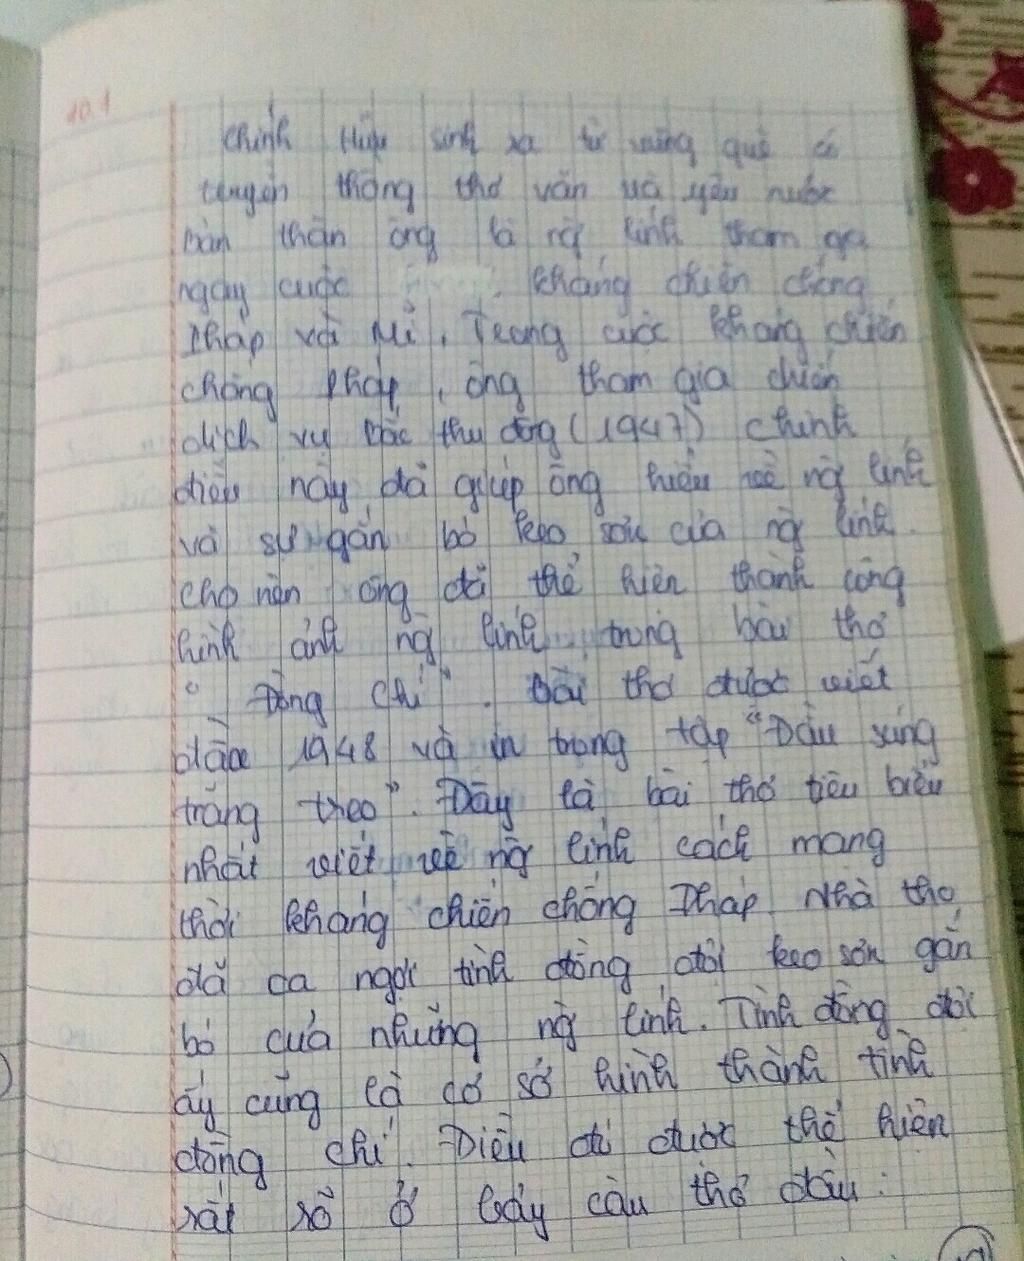 10.1
Chính Hữu sinh ra từ vùng quê có
truyền thống thơ văn và yêu nước
bản thân ông là ng` lính tham gia
ngay cuộc kháng chiến chống
Pháp và Mĩ. Trong cuộc kháng chiến
chống Pháp, ông tham gia chiến
dịch vụ Bắc thu đông (1947) chính
điều này đã giúp ông hiểu về ng` lính
và sự gắn bó keo sơn của ng` lính.
cho nên ông đã thể hiện thành công
hình ảnh ng` lính trong bài thơ
" Đồng Chí". Bài thơ được viết
đầu 1948 và in trong tập "Đầu súng
trăng treo". Đây là bài thơ tiêu biểu
nhất viết về ng` lính cách mang
thời kháng chiến chống Pháp. Nhà thơ
đã ca ngợi tình đồng đội keo sơn gắn
bó của những ng` lính. Tình đồng đội
ấy cũng là cơ sở hình thành tình
đồng chí. Điều đó được thể hiện
rất rõ ở bảy câu thơ đầu: